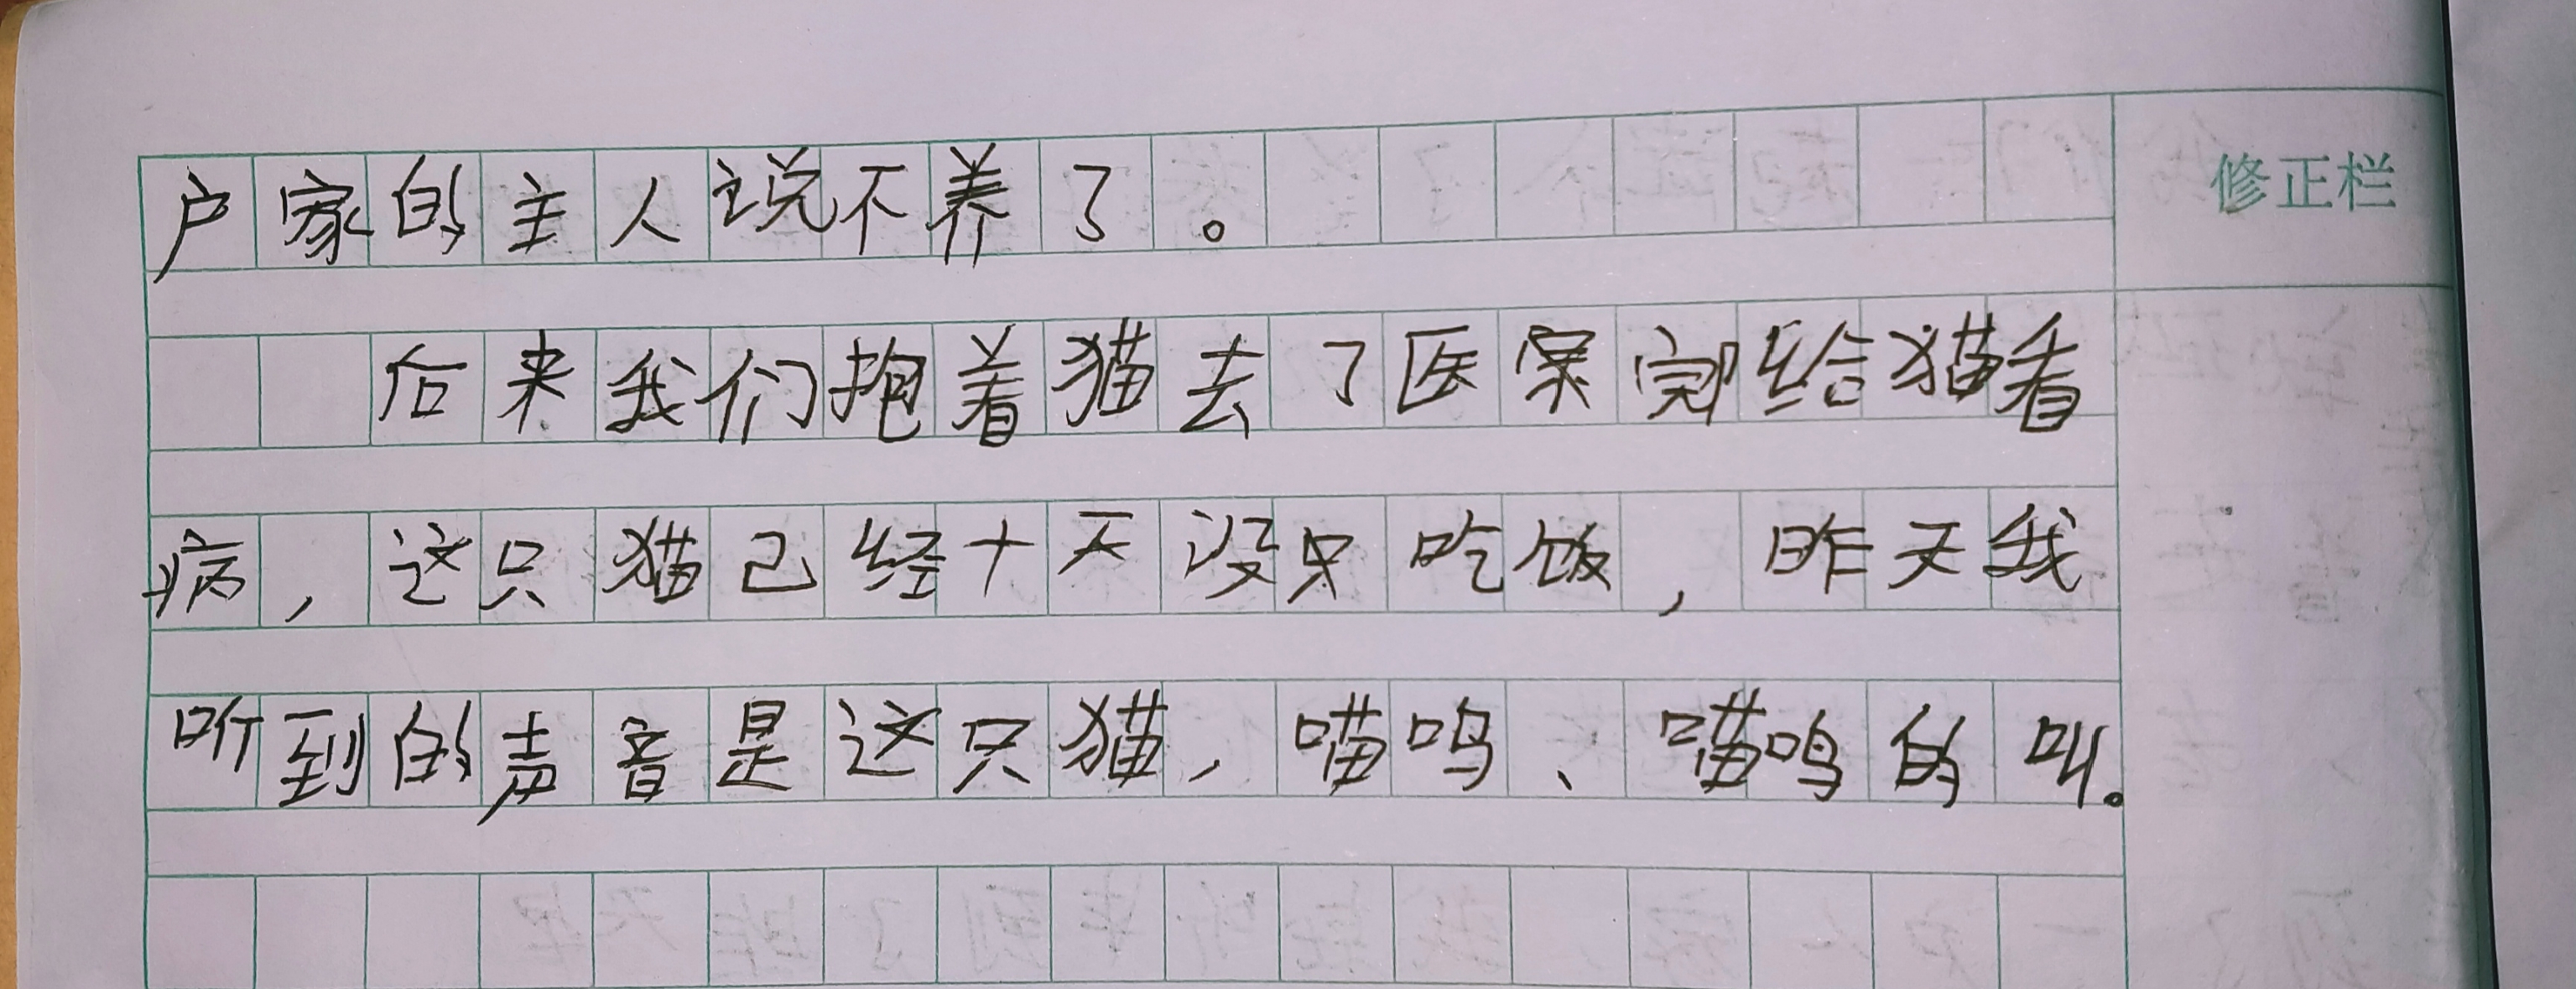 户家的主人说不养了。
修正栏
后来我们抱着猫去了医给猫看
病，这只猫己经十天没只吃饭，昨天我
听到的声音是这只猫，喵呜、喵鸣的叫。